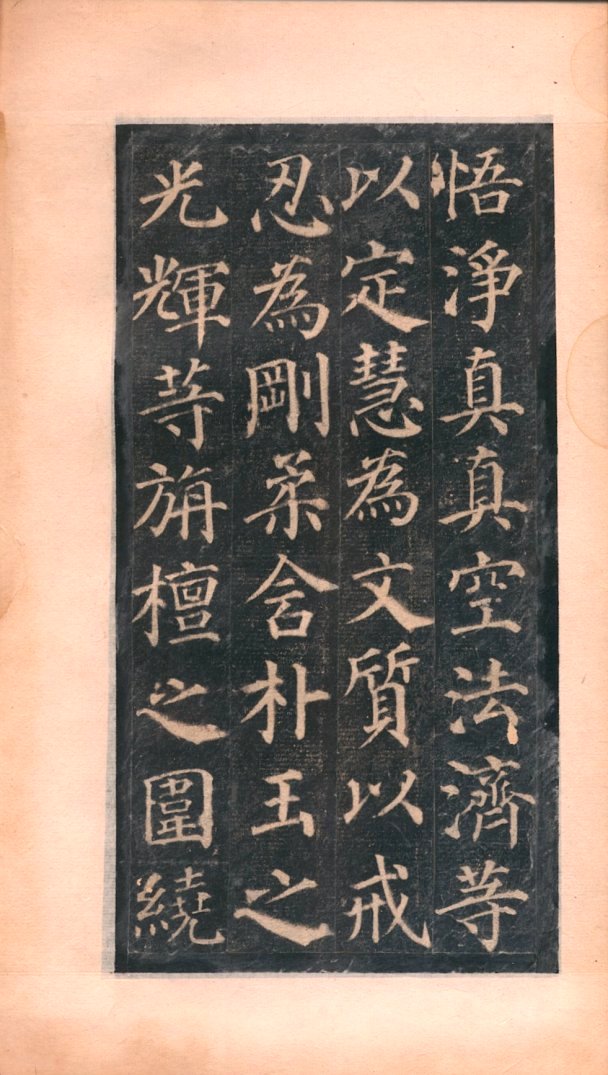 悟淨真真空法濟等
以定慧為文質以戒
忍為剛柔含朴玉之
光輝等旃檀之圍繞